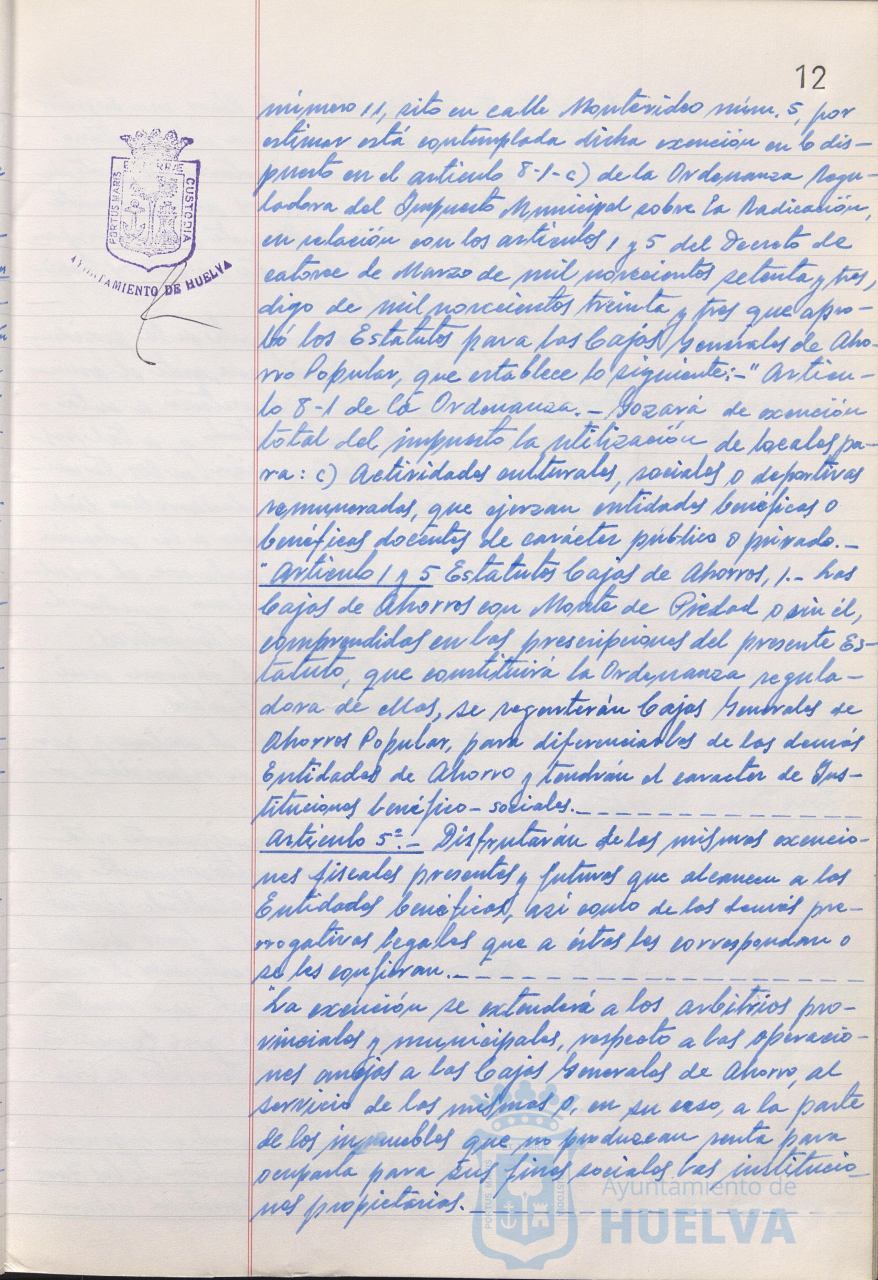 12
número 11, sito en calle Montevideo núm. 5, por
estimar está contemplada dicha exención en lo dis-
puesto en el artículo 8-1-c) de la Ordenanza Regu-
ladora del Impuesto Municipal sobre la Radicación,
en relación con los artículos 1 y 5 del Decreto de
catorce de Marzo de mil novecientos setenta y tres,
digo de mil novecientos treinta y tres que apro-
bó los Estatutos para las Cajas Generales de Aho-
rro Popular, que establece lo siguiente:-" Artícu-
lo 8-1 de la Ordenanza.- Gozará de exención
total del impuesto la utilización de locales pa-
ra: c) Actividades culturales, sociales o deportivas
remuneradas, que ejerzan entidades benéficas o
benéficas docentes de carácter público o privado.-
"Artículo 1 y 5 Estatutos Cajas de Ahorros, 1.- Las
Cajas de Ahorros con Monte de Piedad o sin él,
comprendidas en las prescripciones del presente Es-
tatuto, que constituirá la Ordenanza regula-
dora de ellas, se Cajas Generales de
Ahorros Popular, para diferenciarlas de las demás
Entidades de Ahorro y tendrán el caracter de Ins-
tituciones benéfico-sociales.-
Artículo 5º.- Disfrutarán de las mismas exencio-
nes fiscales presentes y futuras que alcancen a las
Entidades benéficas, así como de las demás pre-
rrogativas legales que a éstas les correspondan o
se les confieran.-
"La exención se extenderá a los arbitrios pro-
vinciales y municipales, respecto a las operacio-
nes anejas a las Cajas Generales de Ahorro, al
servicio de las mismas o, en su caso, a la parte
de los inmuebles que no produzcan renta para
ocuparla para sus fines sociales las institucio-
nes propietarias.-
PORTUS MARIS
CUSTODIA
AYUNTAMIENTO DE HUELVA
Ayuntamiento de
HUELVA